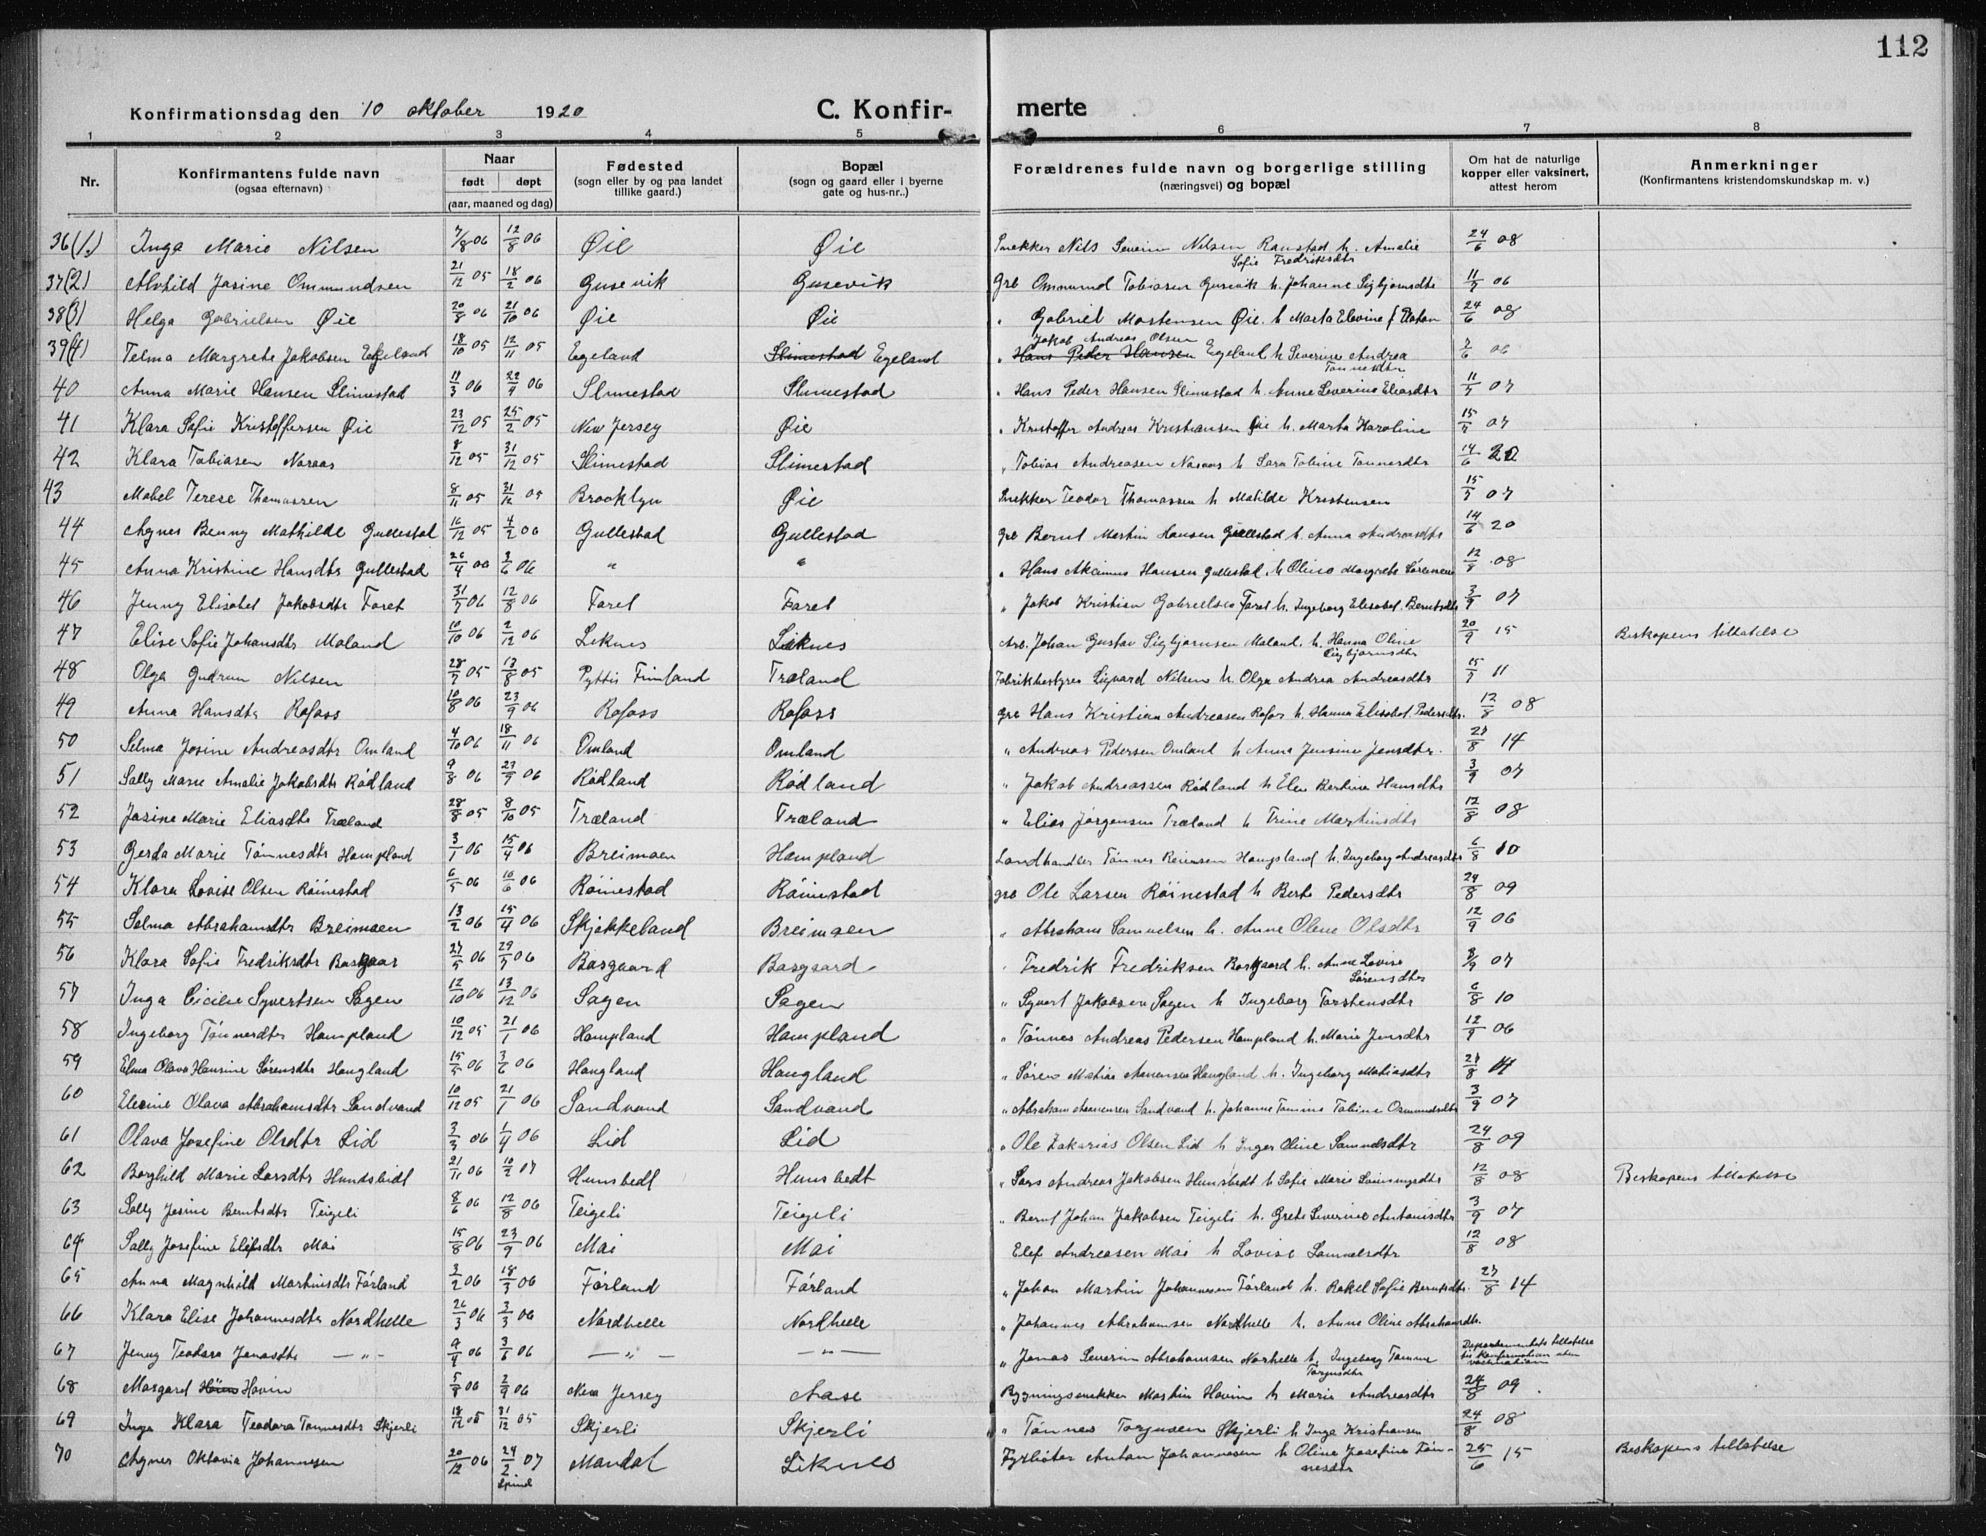 112
Konfirmationsdag den 10 oktober 1920 C. Konfir- merte
1 2 3 4 5 6 7 8
Nr. Konfirmantens fulde navn (ogsaa efternavn) Naar født døpt (aar, maaned og dag) Fødested (sogn eller by og paa landet tillike gaard.) Bopæl (sogn og gaard eller i byerne gate og hus-nr..) Forældrenes fulde navn og borgerlige stilling (næringsvei) og bopæl Om hat de naturlige kopper eller vaksinert, attest herom Anmerkninger (Konfirmantens kristendomskundskap m. v.)
36(1) Inga Marie Nilsen 7/8 06 12/8 06 Øie Øie Snekker Nils Severin Nilsen Ranstad h. Amalie Sofie Fredriksdtr 24/6 08
37(2) Alvhild Josine Ommundsen 21/12 05 18/2 06 Gusevik Gusevik Gbr Ommund Tobiasen Gusevik h. Johanne Sigbjørnsdtr 11/7 06
38(3) Helga Gabrielsen Øie 20/8 06 21/10 06 Øie Øie " Gabriel Mortensen Øie h. Marta Elevine 24/6 08
39(4) Telma Margrete Jakobsen Egeland 18/10 05 12/11 05 Egeland Slimestad Egeland " Hans Peder Hansen Jakob Andreas Olsen Egeland h Severine Andrea Tønnesdtr 06
40 Anna Marie Hansen Slimestad 11/3 06 22/4 06 Slimestad Slimestad " Hans Peder Hansen Slimestad h. Anne Severine Eliasdtr 11/7 07
41 Klara Sofie Kristoffersen Øie 23/12 05 25/2 05 New Jersey Øie " Kristoffer Andreas Kristiansen Øie h. Marta Karoline 15/7 07
42 Klara Tobiasen Noraas 8/12 05 31/12 05 Slimestad Slimestad " Tobias Andreasen Noraas h Sara Tobine Tønnesdtr 14/6 20
43 Mabel Terese Thomassen 8/11 05 31/12 05 Brooklyn Øie Snekker Teodor Thomassen h Matilde Kristensen 15/7 07
44 Agnes Benny Mathilde Gullestad 16/12 05 4/2 06 Gullestad Gullestad gbr Bernt Martin Hansen Gullestad h. Anna Andreasdtr 14/6 20
45 Anna Kristine Hansdtr Gullestad 26/4 06 3/6 06 " " " Hans Hansen Gullestad h Oline Margrete Sørensen 12/8 08
46 Jenny Elisabet Jakobsdtr Faret 31/7 06 12/8 06 Faret Faret " Jakob Kristian Gabrielsen Faret h. Ingeborg Elisabet Berntsdtr 3/9 07
47 Elise Sofie Johansdtr Moland 10/10 06 2/12 06 Liknes Liknes Arb. Johan Gustav Sigbjørnsen Moland h. Hanna Oline Sigbjørnsdtr 20/9 15 Biskopens tillatelse
48 Olga Gudrun Nilsen 28/7 05 13/8 05 Pyttis Finnland Træland Fabrikbestyrer Sigvard Nilsen h. Olga Andrea Andreasdtr 15/7 11
49 Anna Hansdtr Rafoss 10/8 06 23/9 06 Rafoss Rafoss gbr Hans Kristian Andreasen Rafos h. Hanna Elisabet Pedersdtr. 12/8 08
50 Selma Josine Andreasdtr Omland 4/10 06 18/11 06 Omland Omland " Andreas Pedersen Omland h Anna Jensine Jensdtr. 27/8 14
51 Sally Marie Amalie Jakobsdtr Rødland 9/8 06 23/9 06 Rødland Rødland " Jakob Andreassen Rødland h Elen Bertine Hansdtr 3/9 07
52 Josine Marie Eliasdtr Træland 28/8 05 8/10 05 Træland Træland " Elias Jørgensen Træland h Trine Martinsdtr 12/8 08
53 Gerda Marie Tønnesdtr Hampland 3/1 06 15/4 06 Breimoen Hampland Landhandler Tønnes Reiersen h. Ingeborg Andreasdtr 6/8 10
54 Klara Lovise Olsen Røinestad 6/5 06 10/6 06 Røinestad Røinestad gbr Ole Larsen Røinestad h Berte Pedersdtr 24/8 09
55 Selma Abrahamsdtr Breimoen 13/2 06 15/4 06 Skjekkeland Breimoen " Abraham Samuelsen h. Anne Oline Olsdtr 12/9 06
56 Klara Sofie Fredriksdtr Basgaar 27/5 06 29/7 06 Basgaard Basgaard " Fredrik Fredriksen Basgaard h. Anne Lovise Sørensdtr 3/9 07
57 Inga Cicilie Syvertsen Sagen 12/10 06 13/12 06 Sagen Sagen " Syvert Jakobsen Sagen h Ingeborg Torstensdtr 6/8 10
58 Ingeborg Tønnesdtr Hampland 10/12 05 21/1 06 Hampland Hampland " Tønnes Andreas Pedersen Hampland h. Marie Jensdtr 12/9 06
59 Elma Olava Hansine Sørensdtr Haugland 15/5 06 3/6 06 Haugland Haugland " Søren Matias Aanensen Haugland h. Ingeborg Matiasdtr 27/8 14
60 Elevine Olava Abrahamsdtr Sandvand 10/12 05 21/1 06 Sandvand Sandvand " Abraham Aanensen Sandvand h. Johanne Tomine Tobine Osmundsdtr 3/9 07
61 Olava Josefine Olsdtr Lid 3/3 06 1/4 06 Lid Lid " Ole Zakarias Olsen Lid h Inger Oline Samuelsdtr 24/8 09
62 Borghild Marie Larsdtr Hundsbidt 21/11 06 10/2 07 Hunsbedt Hunsbedt " Lars Andreas Jakobsen Hunsbedt h Sofie Marie 12/8 08 Biskopens tillatelse
63 Sally Josine Berntsdtr Teigeli 8/6 06 12/8 06 Teigeli Teigeli " Bernt Johan Jakobsen Teigeli h. Grete Severine Antonisdtr 3/9 07
64 Sally Josefine Elefsdtr Moi 15/8 06 23/9 06 Moi Moi Elef Andreasen Moi h Lovise Samuelsdtr 12/8 08
65 Anna Magnhild Martinsdtr Førland 2/2 06 18/3 06 Førland Førland " Johan Martin Johannesen Førland h. Rakel Sofie Berntsdtr. 27/8 14
66 Klara Elise Johannesdtr Nordhelle 26/3 06 3/3 06 Nordhelle Nordhelle " Johannes Abrahamsen Nordhelle h. Anne Oline Abrahamsdtr.
67 Jenny Teodora Jonasdtr — " — 9/4 06 3/6 06 — " — — " — " Jonas Severin Abrahamsen Norhelle h. Ingeborg Tomine Torgersdtr Departementets tillatelse til Konfirmation uten vaccination
68 Margaret Hovin 5/8 06 2/9 06 New Jersey Aase Bygningssnekker Martin Hovin h Marie Andreasdtr 24/8 09
69 Inga Klara Teodora Tønnesdtr Skjerli 18/12 05 31/12 05 Skjerli Skjerli " Tønnes Torgersen Skjerli h Inga Kristiansen 24/8 08
70 Agnes Oktavia Johannesen 20/12 06 24/2 07 Spind Mandal Liknes Fyrbøter Anton Johannesen h Oline Josefine Tønnesdtr 25/6 15 Biskopens tillatelse